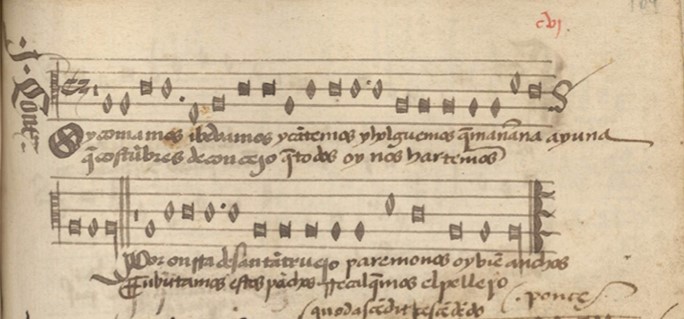 cvj.
J. Ponce
Oy comamos ibevamos ycãtemos yholguemos q̃mañana ayuna
q̃costũbres deconcejo q̃todos oy nos hartemos
Por onrra desantãtruejo paremonos oybiẽ anchos
Enbutamos estos pãchos rrecalq̃mos elpellejo
ponce